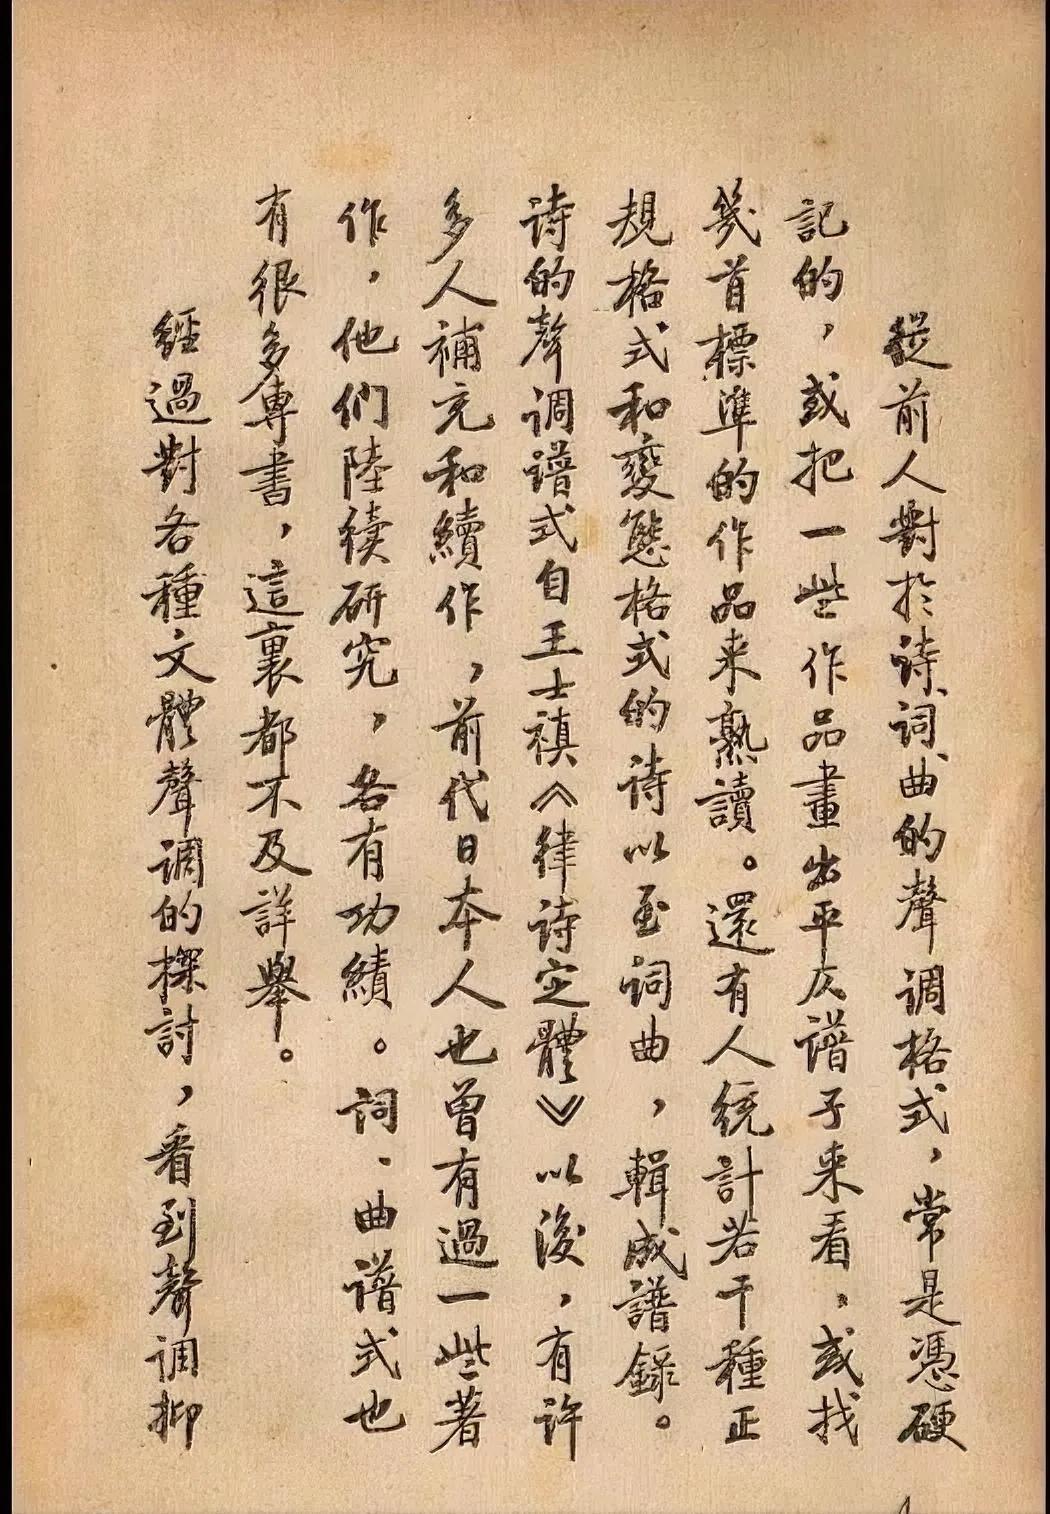 從前人對於诗、词、曲的聲调格式，常是憑硬
記的，或把一些作品畫出平仄谱子来看，或找
幾首標準的作品来熟讀。還有人统計若干種正
規格式和變態格式的诗以至词曲，輯成譜錄。
诗的聲调谱式自王士禛《律诗定體》以後，有许
多人補充和續作，前代日本人也曾有過一些著
作，他们陸续研究，各有功績。詞、曲谱式也
有很多專書，這裏都不及詳舉。
經過對各種文體聲调的探討，看到聲调抑